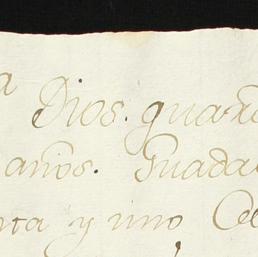 a
Dios guard
años. Guada
nta y uno Oc